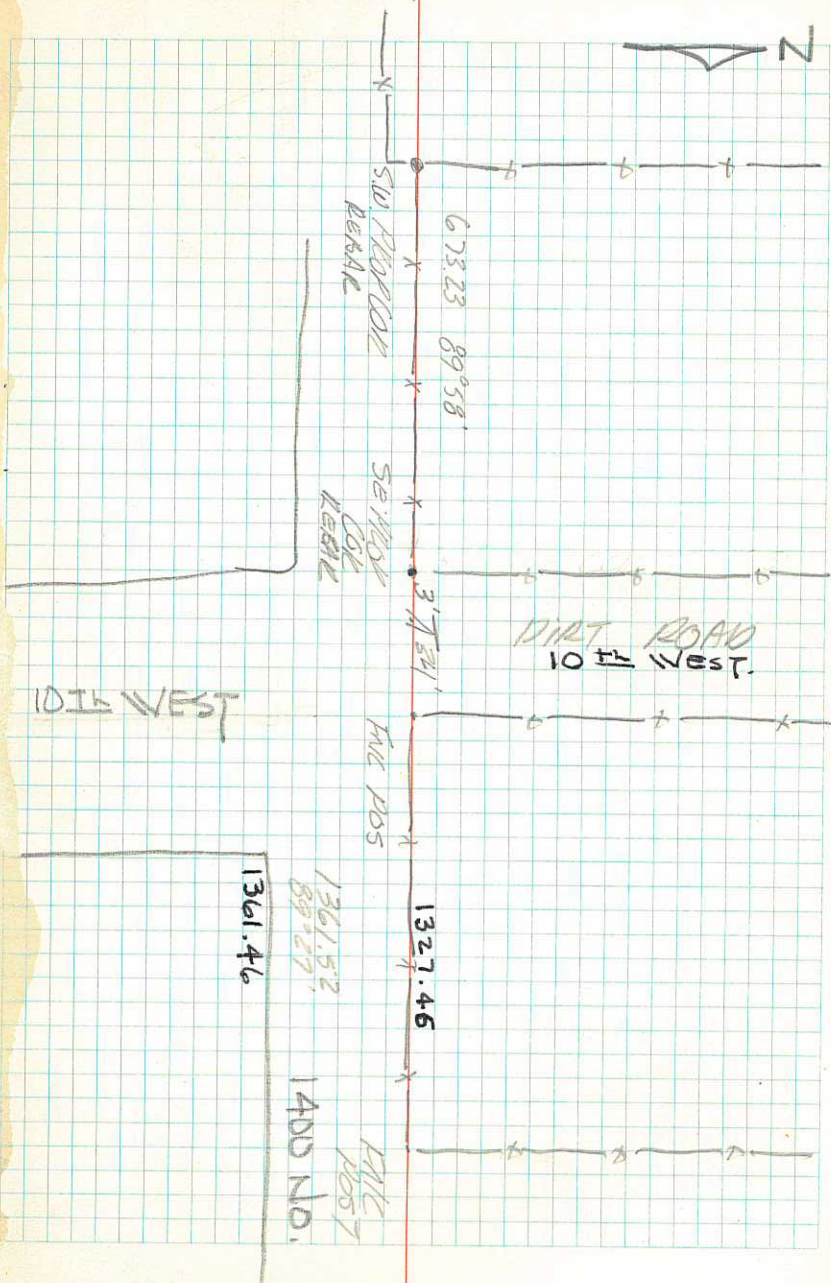 N
673.23 89°58'
S.W. PROP COR
REBAR
COR
REBAR
3'
DIRT ROAD
10 Th WEST.
10 Th WEST
FNC POS
1327.46
1361.52
89°27'
1361.46
1400 NO.
FNC
POST